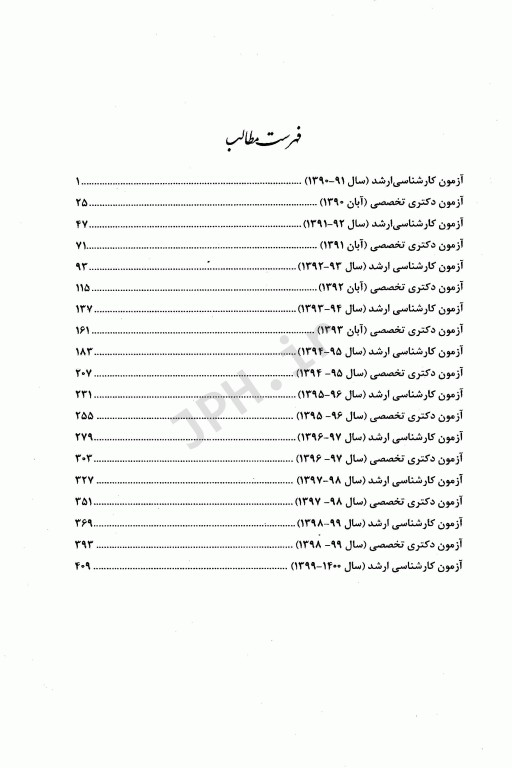 فهرست مطالب
آزمون کارشناسی‌ارشد (سال ۹۱-۱۳۹۰) ........ ۱
آزمون دکتری تخصصی (آبان ۱۳۹۰) ........ ۲۵
آزمون کارشناسی‌ارشد (سال ۹۲-۱۳۹۱) ........ ۴۷
آزمون دکتری تخصصی (آبان ۱۳۹۱) ........ ۷۱
آزمون کارشناسی ارشد (سال ۹۳-۱۳۹۲) ........ ۹۳
آزمون دکتری تخصصی (آبان ۱۳۹۲) ........ ۱۱۵
آزمون کارشناسی ارشد (سال ۹۴-۱۳۹۳) ........ ۱۳۷
آزمون دکتری تخصصی (آبان ۱۳۹۳) ........ ۱۶۱
آزمون کارشناسی ارشد (سال ۹۵-۱۳۹۴) ........ ۱۸۳
آزمون دکتری تخصصی (سال ۹۵- ۱۳۹۴) ........ ۲۰۷
آزمون کارشناسی ارشد (سال ۹۶-۱۳۹۵) ........ ۲۳۱
آزمون دکتری تخصصی (سال ۹۶- ۱۳۹۵) ........ ۲۵۵
آزمون کارشناسی ارشد (سال ۹۷-۱۳۹۶) ........ ۲۷۹
آزمون دکتری تخصصی (سال ۹۷- ۱۳۹۶) ........ ۳۰۳
آزمون کارشناسی ارشد (سال ۹۸-۱۳۹۷) ........ ۳۲۷
آزمون دکتری تخصصی (سال ۹۸- ۱۳۹۷) ........ ۳۵۱
آزمون کارشناسی ارشد (سال ۹۹-۱۳۹۸) ........ ۳۶۹
آزمون دکتری تخصصی (سال ۹۹- ۱۳۹۸) ........ ۳۹۳
آزمون کارشناسی ارشد (سال ۱۴۰۰-۱۳۹۹) ........ ۴۰۹
JPH.ir